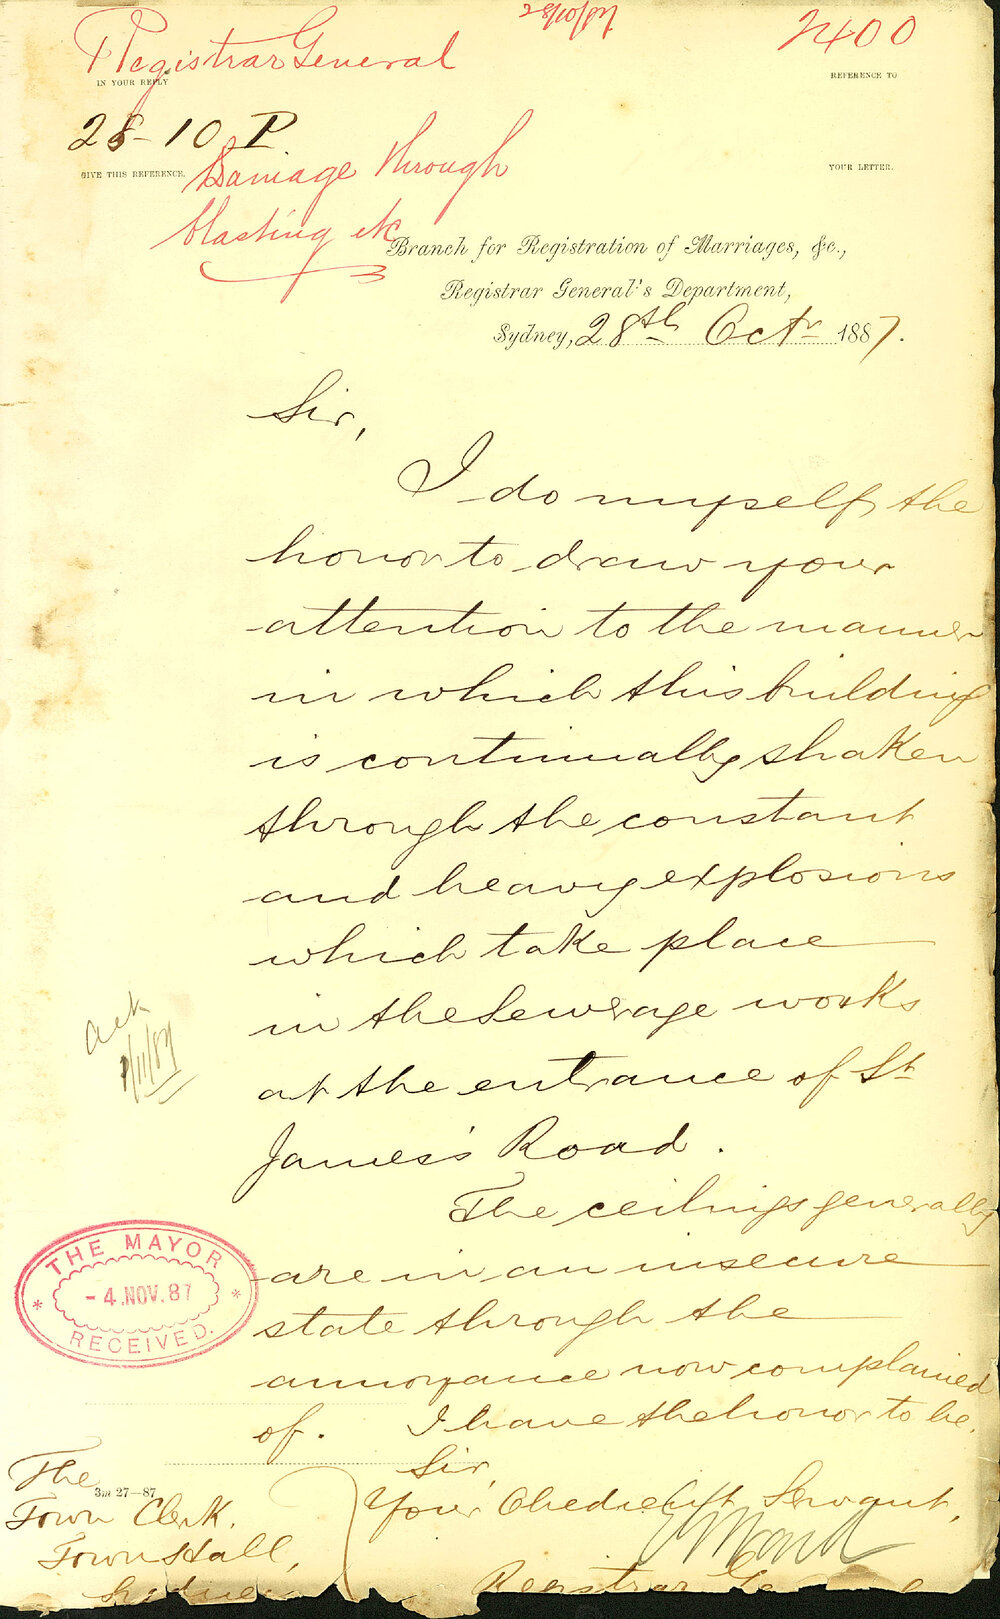 28/10/87
2400
Registrar General
IN YOUR REPLY
REFERENCE TO
28-10 P.
GIVE THIS REFERENCE.
YOUR LETTER.
Damage through
blasting etc
Branch for Registration of Marriages, &c.,
Registrar General's Department,
Sydney, 28th Octr 1887.
Sir,
I do myself the
honor to draw your
attention to the manner
in which this building
is continually shaken
through the constant
and heavy explosions
which take place
in the Sewerage works
at the entrance of St
James's Road.
The ceilings generally
are in an insecure
state through the
annoyance now complained
of. I have the honor to be,
Sir,
Your Obedient Servant,
Registrar
Ack
1/11/87
THE MAYOR
- 4. NOV. 87
RECEIVED.
3m 27-87
The
Town Clerk,
Town Hall,
Sydney